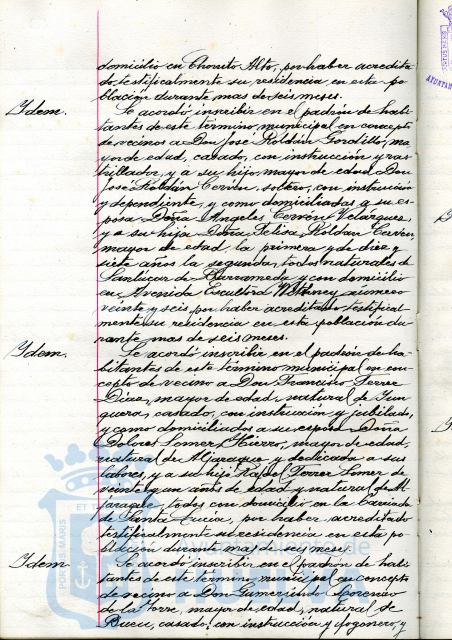 domicilio en Chorrito Alto, por haber acredita
do testificalmente su residencia en esta po
blación durante mas de seis meses.
Idem. Se acordó inscribir en el padrón de habi
tantes de este término municipal en concepto
de vecinos a Don José Roldán Gordillo, ma
yor de edad, casado, con instrucción y ras
trillador, y a su hijo, mayor de edad Don
José Roldán Cerván, soltero, con instrucción
y dependiente, y como domiciliadas a su es
posa Doña Angeles Cerván Velazquez,
y a su hija Doña Felisa Roldan Cervan,
mayor de edad la primera y de diez y
siete años la segunda, todos naturales de
Sanlúcar de Barrameda y con domicilio
en Avenida Escultora W. Whitney número
veinte y seis, por haber acreditado testifical
mente su residencia en esta población du
rante mas de seis meses.
Idem. Se acordó inscribir en el padrón de ha
bitantes de este término municipal en con
cepto de vecino a Don Francisco Ferrer
Díaz, mayor de edad, natural de Yun
quera, casado, con instrucción y jubilado,
y como domiciliados a su esposa Doña
Dolores Somer Hierro, mayor de edad,
natural de Aljaraque y dedicada a sus
labores, y a su hijo Rafael Ferrer Somer de
veinte y un años de edad y natural de Al
jaraque, todos con domicilio en la Barriada
de Santa Lucía, por haber acreditado
testificalmente su residencia en esta po
blación durante mas de seis meses.
Idem Se acordó inscribir en el padrón de habi
tantes de este término municipal en concepto
de vecino a Don Gumersindo Lorenzo
de la Torre, mayor de edad, natural de
Bueu, casado, con instrucción y fogonero, y
PORTUS MARIS
ET TE
Ayuntamiento de